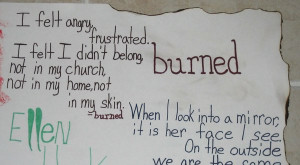 I felt angry,
frustrated.
I felt I didn't belong,
not in my church,
not in my home, not
in my skin.
=burned
burned
When I look into a mirror,
it is her face I see
On the outside
we are the same
Ellen